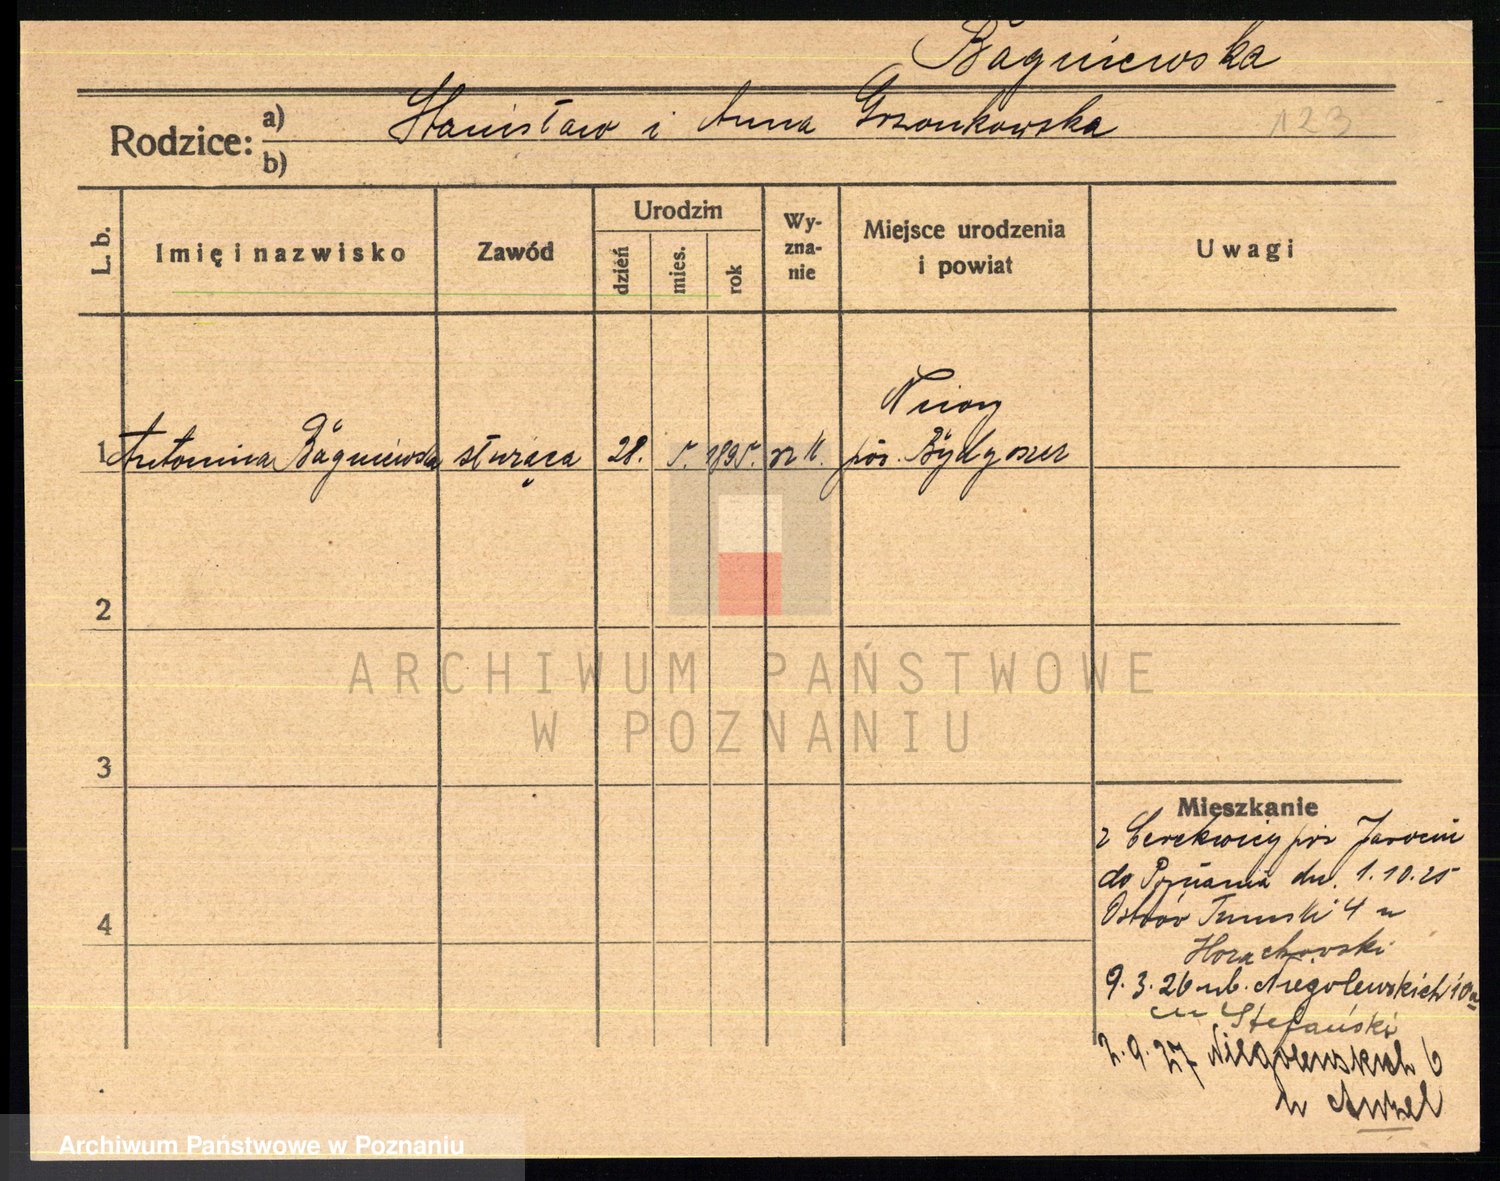 Bagniewska
Rodzice: a) Stanisław i Anna Grzonkowska
b)
123
L. b.
Imię i nazwisko
Zawód
Urodzin
dzień
mies.
rok
Wy-
zna-
nie
Miejsce urodzenia
i powiat
Uwagi
1 Antonina Bagniewska służąca 28. 5. 1895. rz k. pow. Bydgoszcz
2
3
4
ARCHIWUM PAŃSTWOWE
W POZNANIU
Mieszkanie
z Cerekwicy pow Jarocin
do Poznania dn. 1.10.25
Ostrów Tumski 4 u
Horachowski
9.3.26 ul. Niegolewskich 10a
u Stefański
2.9.27 Niegolewskich 6
u
Archiwum Państwowe w Poznaniu